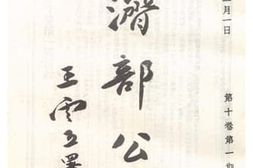 月一日
第十卷第一期
濟部公
王雲五署